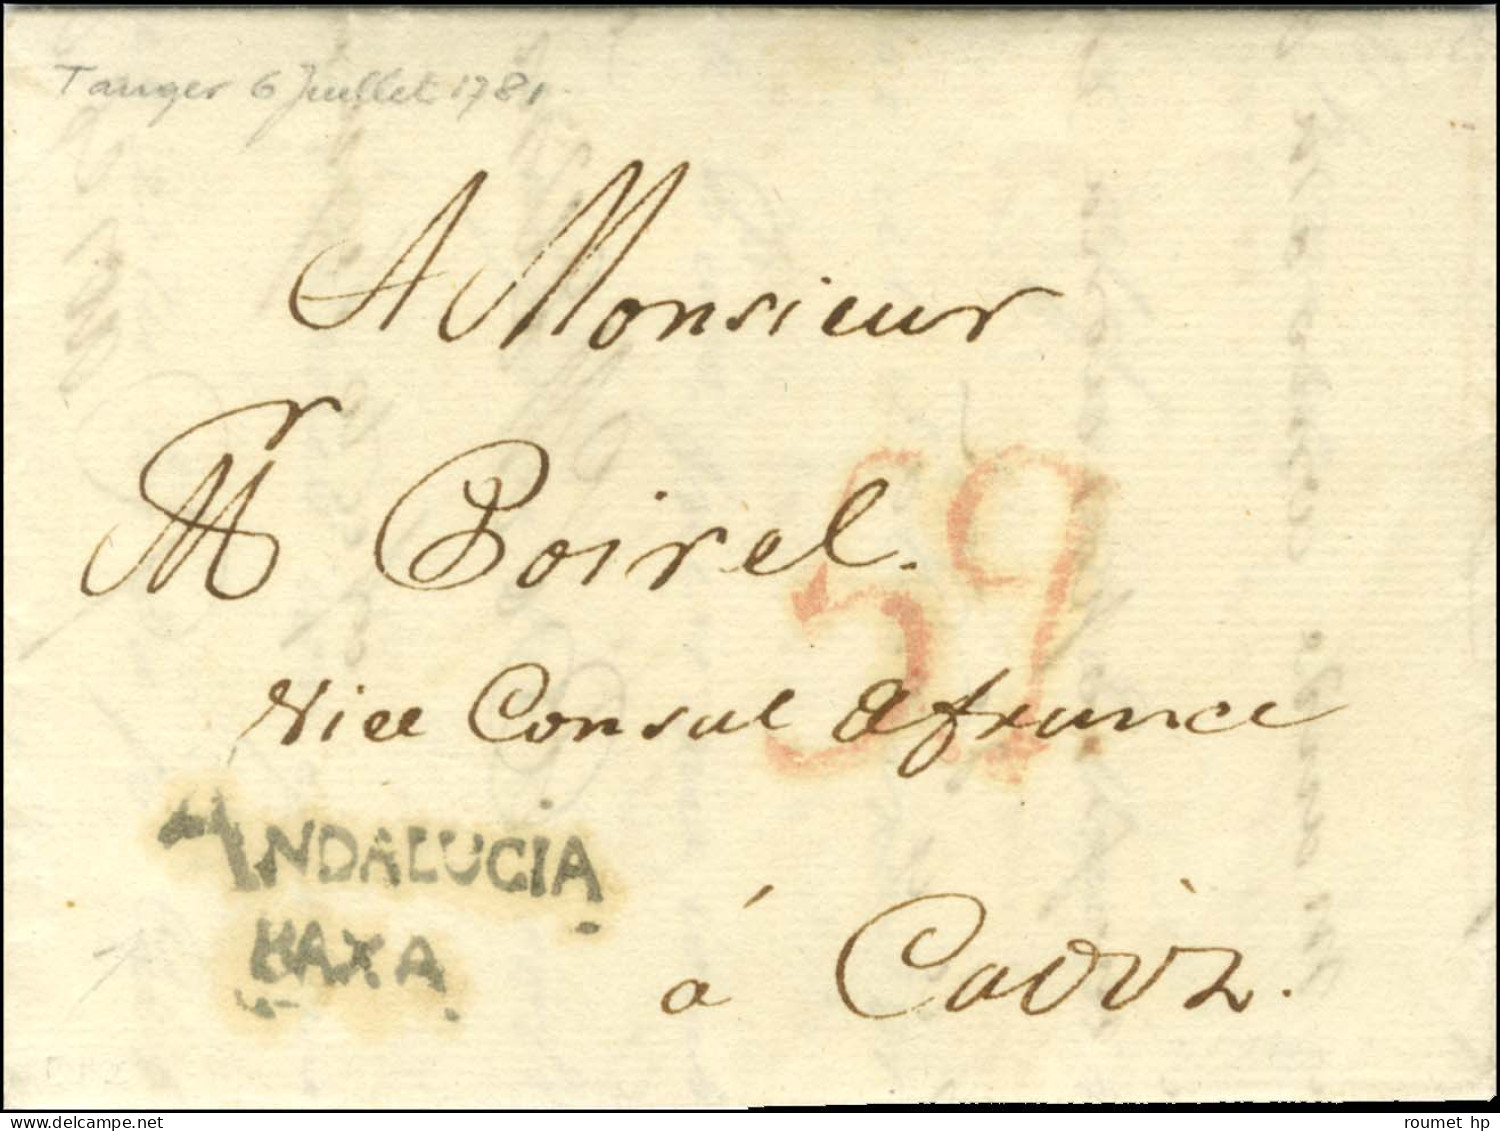 Tanger 6 Juillet 1781
A Monsieur
Mr Poirel.
59
Vice Consul de france
ANDALUCIA
BAXA
á Cadiz.
roumet hp